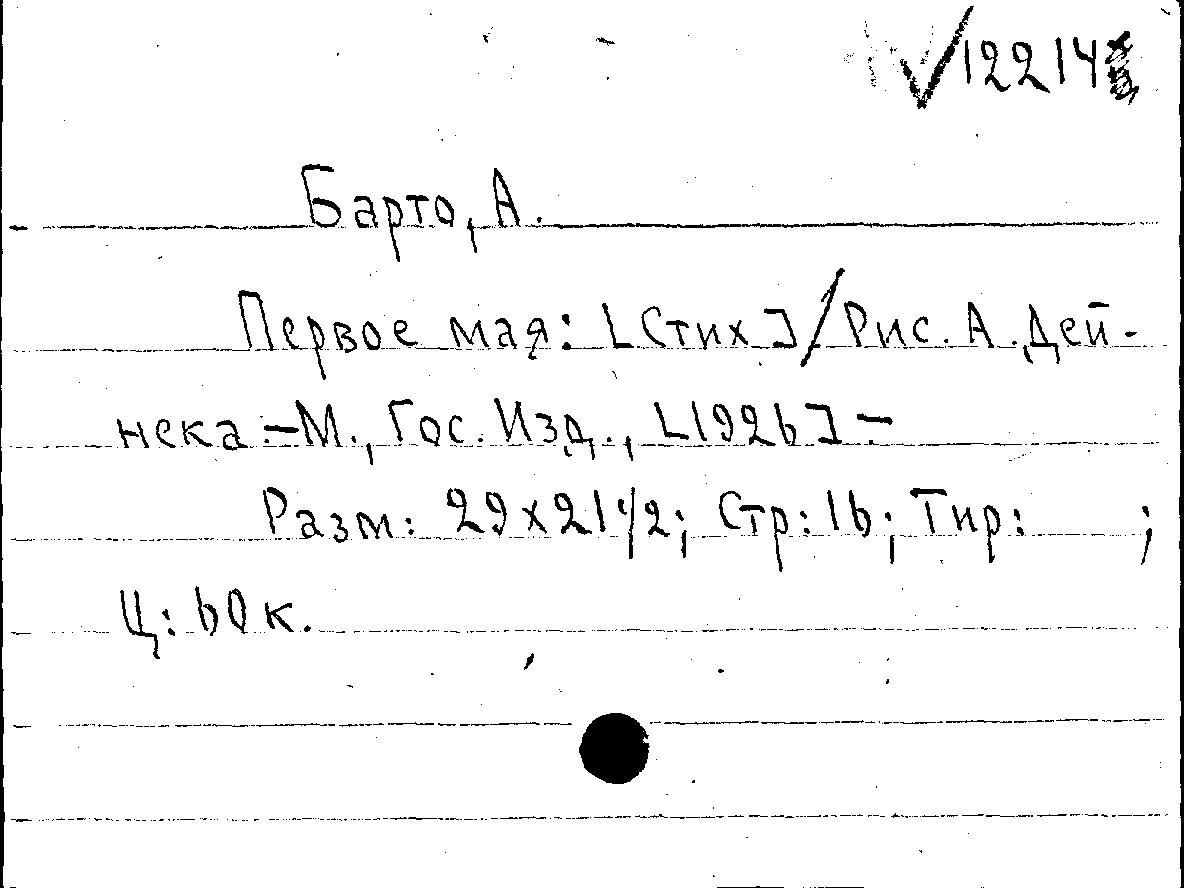 √12214
Барто, А.
Первое мая: [Стих]/Рис. А. Дей-
нека.—М., Гос. Изд., [1926]—
Разм: 29×21 1/2; Стр: 16; Тир: ;
Ц: 60 к.